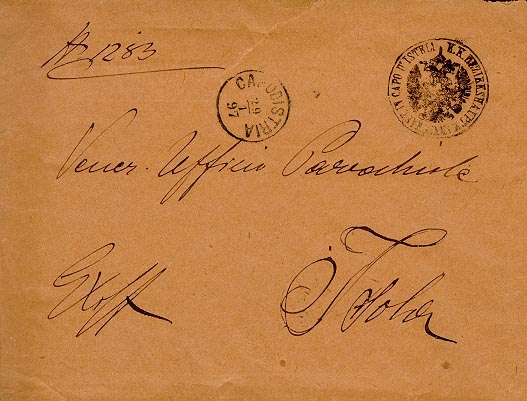 № 1283
K.K. BEZIRKSHAUPTMANNSCHAFT IN CAPO D'ISTRIA
CAPODISTRIA
29
1
97
Vener. Ufficio Parochiale
Exoff
Isola